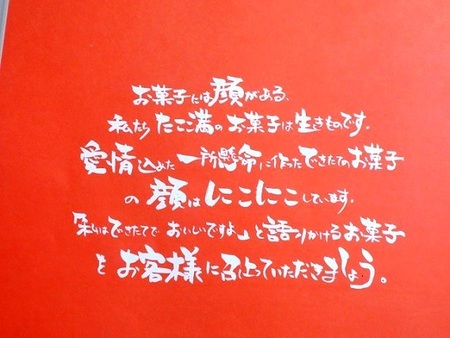 お菓子には顔がある、
私たち たここ満のお菓子は生きものです。
愛情込めた 一所懸命に作ったできたてのお菓子
の顔はにこにこしています。
「私はできたてで おいしいですよ」と語りかけるお菓子
を お客様に召上っていただきましょう。